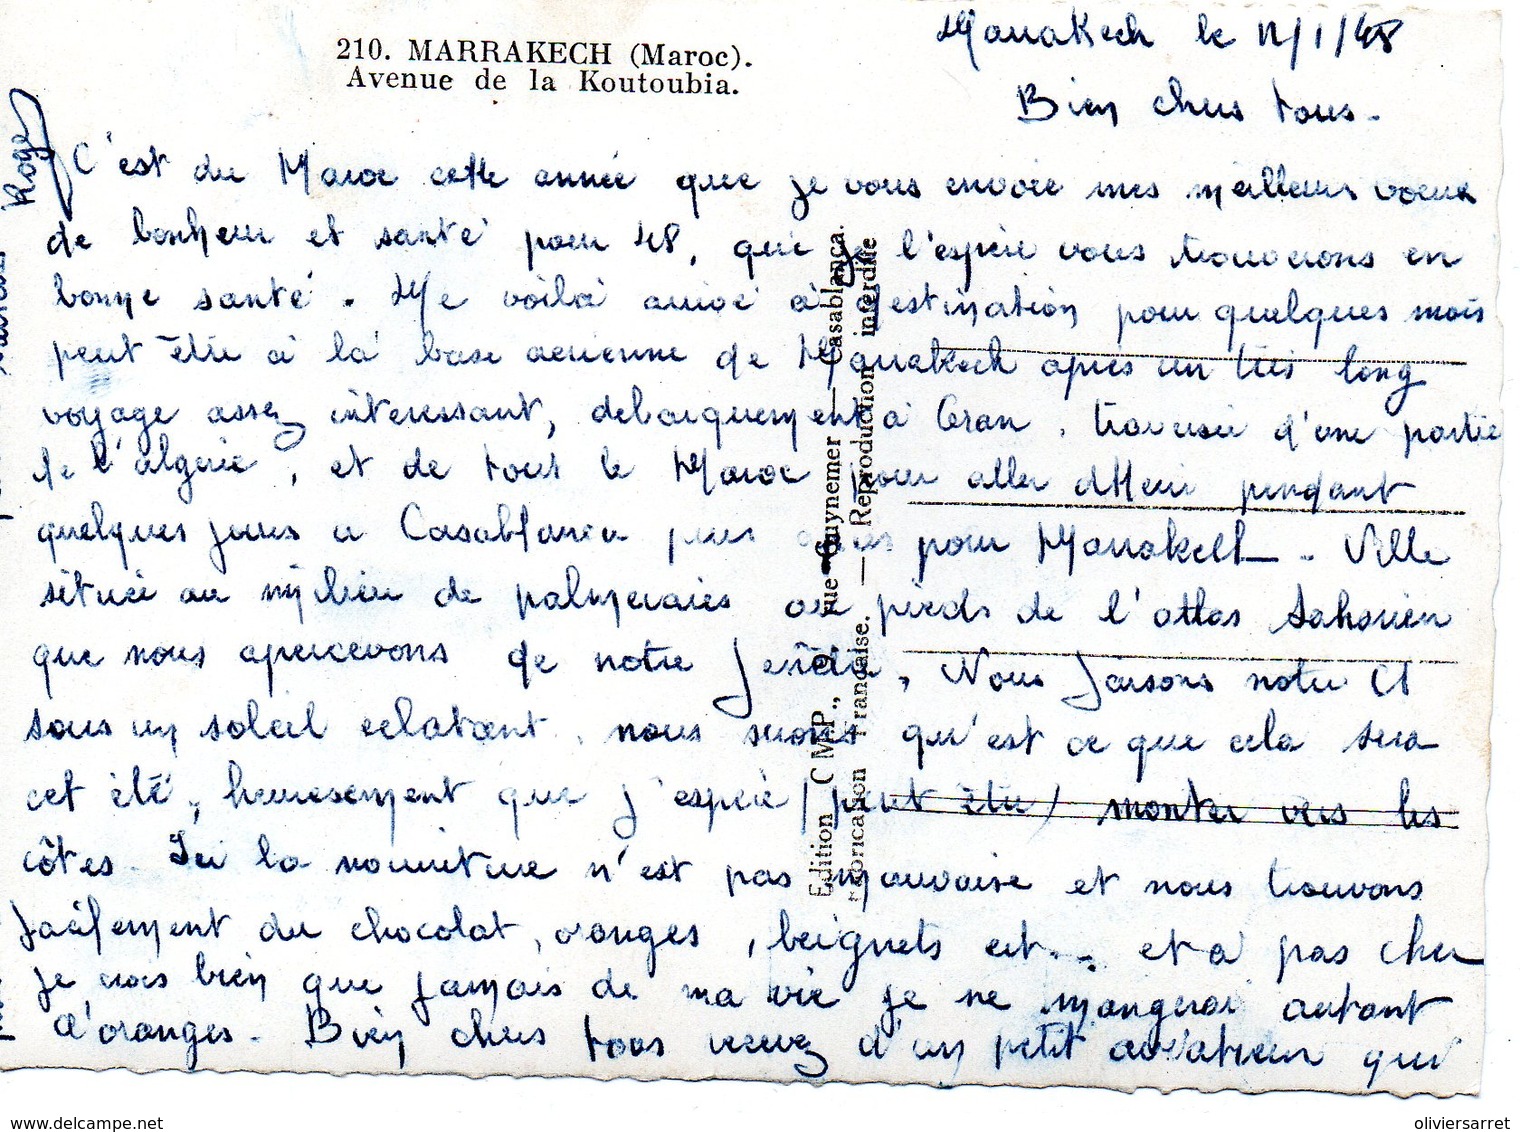 210. MARRAKECH (Maroc).
Avenue de la Koutoubia.
Marrakech le 12/1/48
Bien chers tous.
C'est du Maroc cette année que je vous envoie mes meilleurs voeux
de bonheur et santé pour 48, qui je l'espère vous trouverons en
bonne santé. Me voilà arrivé à destination pour quelques mois
peut être à la base aerienne de Marrakech après un très long
voyage assez interessant, debarquement à Oran, traversée d'une partie
de l'algerie, et de tout le Maroc pour aller atterir pendant
quelques jours a Casablanca puis pour Marrakech. Ville
située au milieu de palmeraies au pieds de l'atlas Saharien
que nous apercevons de notre fenêtre, Nous faisons notre CI
sous un soleil eclatant, nous suons qu'est ce que cela sera
cet été, heuresement que j'espère (peut être) monter vers les
côtes. Ici la nourriture n'est pas mauvaise et nous trouvons
facilement du chocolat, oranges, beignets ect... et à pas cher
je crois bien que jamais de ma vie je ne mangerai autant
d'oranges. Bien chers tous recevez d'un petit aviateur qui
Roger
Edition C.M.P., rue Guynemer — Casablanca.
Fabrication Française. — Reproduction interdite
www.delcampe.net
oliviersarret